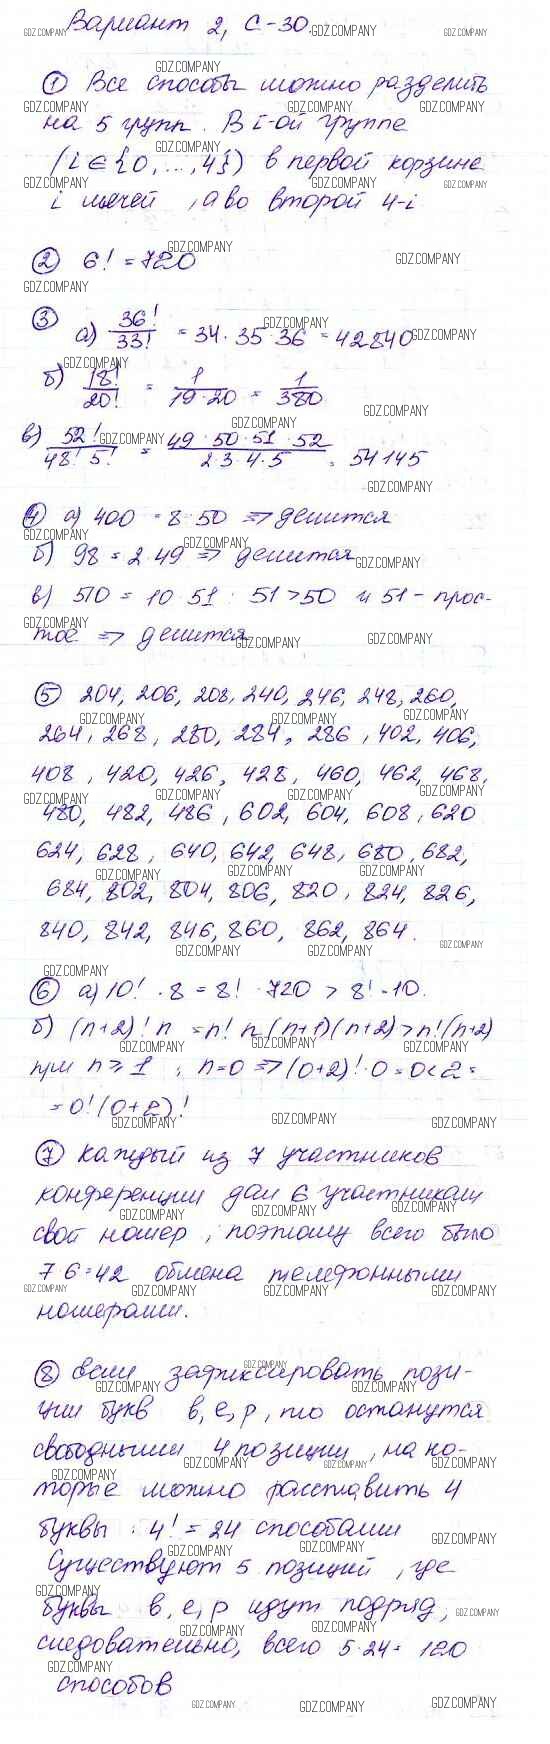 Вариант 2, С-30.
① Все способы можно разделить
на 5 групп. В i-ой группе
(i ∈ {0, ..., 4}) в первой корзине
i мячей, а во второй 4-i
② 6! = 720
③ а) 36!/33! = 34 · 35 · 36 = 42840
б) 18!/20! = 1/19·20 = 1/380
в) 52!/48! 5! = 49 · 50 · 51 · 52/2·3·4·5 = 54145
④ а) 400 = 8 · 50 => делится
б) 98 = 2 · 49 => делится
в) 510 = 10 · 51 : 51 > 50 и 51 - прос-
тое => делится
⑤ 204, 206, 208, 240, 246, 248, 260,
264, 268, 280, 284, 286, 402, 406,
408, 420, 426, 428, 460, 462, 468,
480, 482, 486, 602, 604, 608, 620
624, 628, 640, 642, 648, 680, 682,
684, 802, 804, 806, 820, 824, 826,
840, 842, 846, 860, 862, 864.
⑥ а) 10! · 8 = 8! · 720 > 8! · 10.
б) (n+2)! n = n! n (n+1)(n+2) > n!(n+2)
при n ≥ 1 ; n=0 => (0+2)! · 0 = 0 < 2 =
= 0! (0+2)!
⑦ Каждый из 7 участников
конференции дал 6 участникам
свой номер, поэтому всего было
7·6=42 обмена телефонными
номерами.
⑧ Если зафиксировать пози-
ции букв в, е, р, то останутся
свободными 4 позиции, на ко-
торые можно расставить 4
буквы 4! = 24 способами
Существуют 5 позиций, где
буквы в, е, р идут подряд,
следовательно, всего 5·24= 120
способов
GDZ.COMPANY